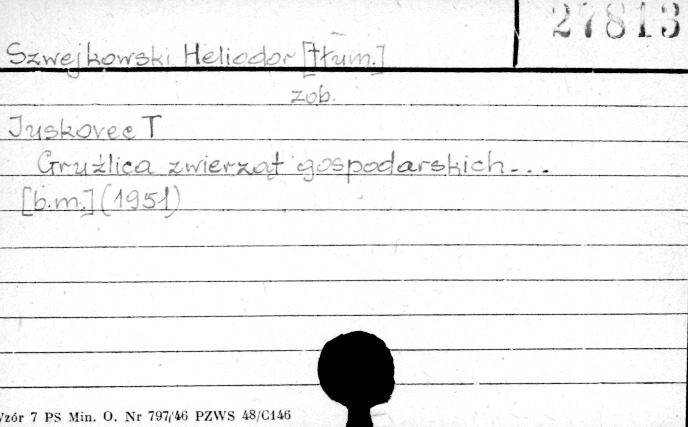 27813
Szwejkowski Heliodor [tłum.]
zob.
Juskovec T
Gruźlica zwierząt gospodarskich...
[b.m.] (1951)
Wzór 7 PS Min. O. Nr 797/46 PZWS 48/C146